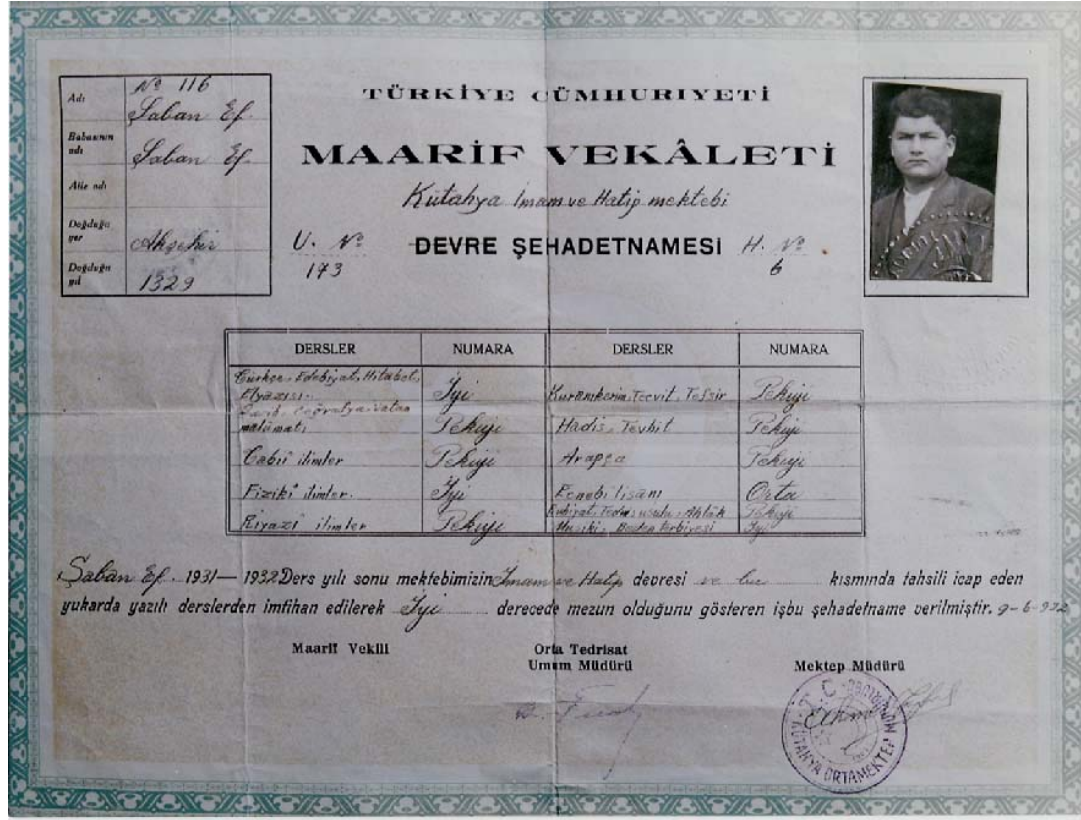 Adı
Nº 116
Şaban Ef.
Babasının adı
Şaban Ef.
Aile adı
Doğduğu yer
Akşehir
Doğduğu yıl
1329
TÜRKİYE CÜMHURIYETİ
MAARİF VEKÂLETİ
Kütahya İmam ve Hatip mektebi
U. Nº
173
DEVRE ŞEHADETNAMESİ
H. Nº
6
DERSLER NUMARA DERSLER NUMARA
Türkçe, Edebiyat, Hitabet, Elyazısı. İyi Kuranıkerim, Tecvit, Tefsir Pekiyi
Tarih, Coğrafya, vatan malûmatı Pekiyi Hadis, Tevhit Pekiyi
Tabiî ilimler Pekiyi Arapça Pekiyi
Fizikî ilimler. İyi Ecnebi lisanı Orta
Riyazî ilimler Pekiyi Ruhiyat, Tedris usulu, Ahlâk Pekiyi
Musiki, Beden terbiyesi İyi
Şaban Ef. 1931—1932 Ders yılı sonu mektebimizin İmam ve Hatip devresi ve bu kısmında tahsili icap eden
yukarda yazılı derslerden imtihan edilerek İyi derecede mezun olduğunu gösteren işbu şehadetname verilmiştir. 9-6-932
Maarif Vekili
Orta Tedrisat
Umum Müdürü
Mektep Müdürü
T. C.
KÜTAHYA ORTAMEKTEP